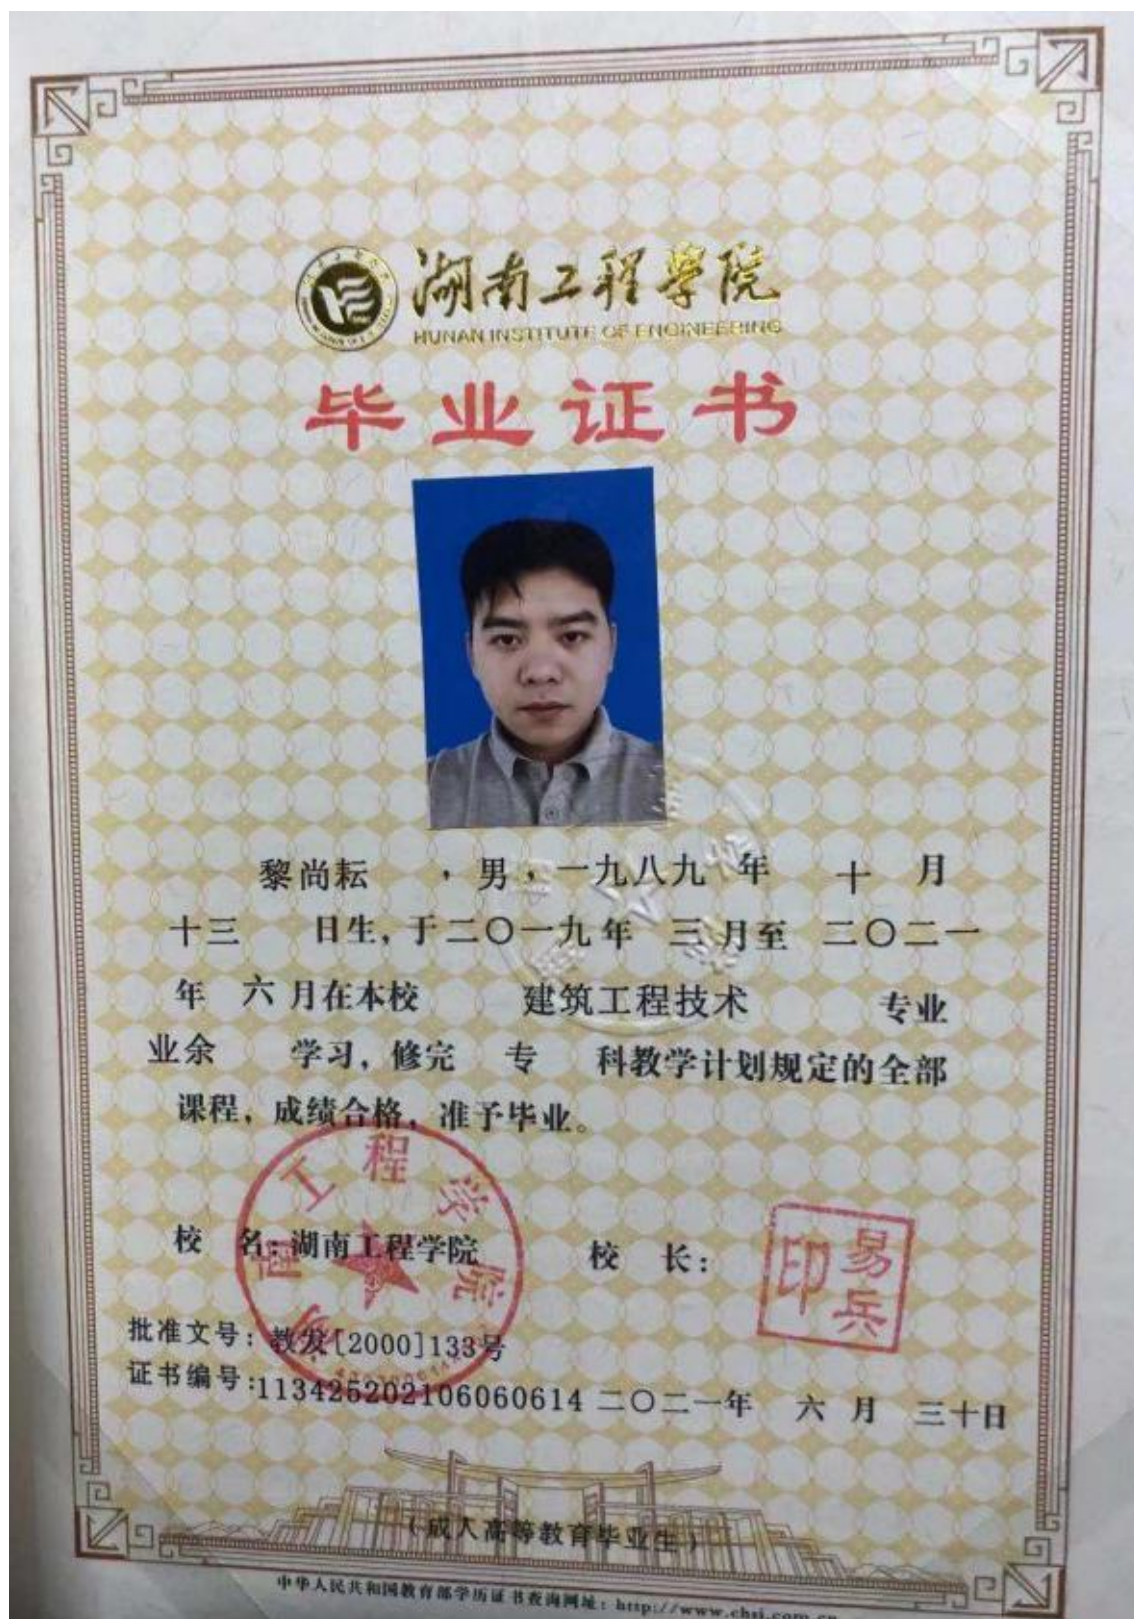 湖南工程学院
HUNAN INSTITUTE OF ENGINEERING
毕业证书
黎尚耘 ，男，一九八九 年 十 月
十三 日生，于二〇一九年 三 月至 二〇二一
年 六 月在本校 建筑工程技术 专业
业余 学习，修完 专 科教学计划规定的全部
课程，成绩合格，准予毕业。
校 名：湖南工程学院 校 长：
易兵印
批准文号：教发[2000]133号
证书编号：113425202106060614 二〇二一年 六 月 三十日
（成人高等教育毕业生）
中华人民共和国教育部学历证书查询网址：http://www.chsi.com.cn